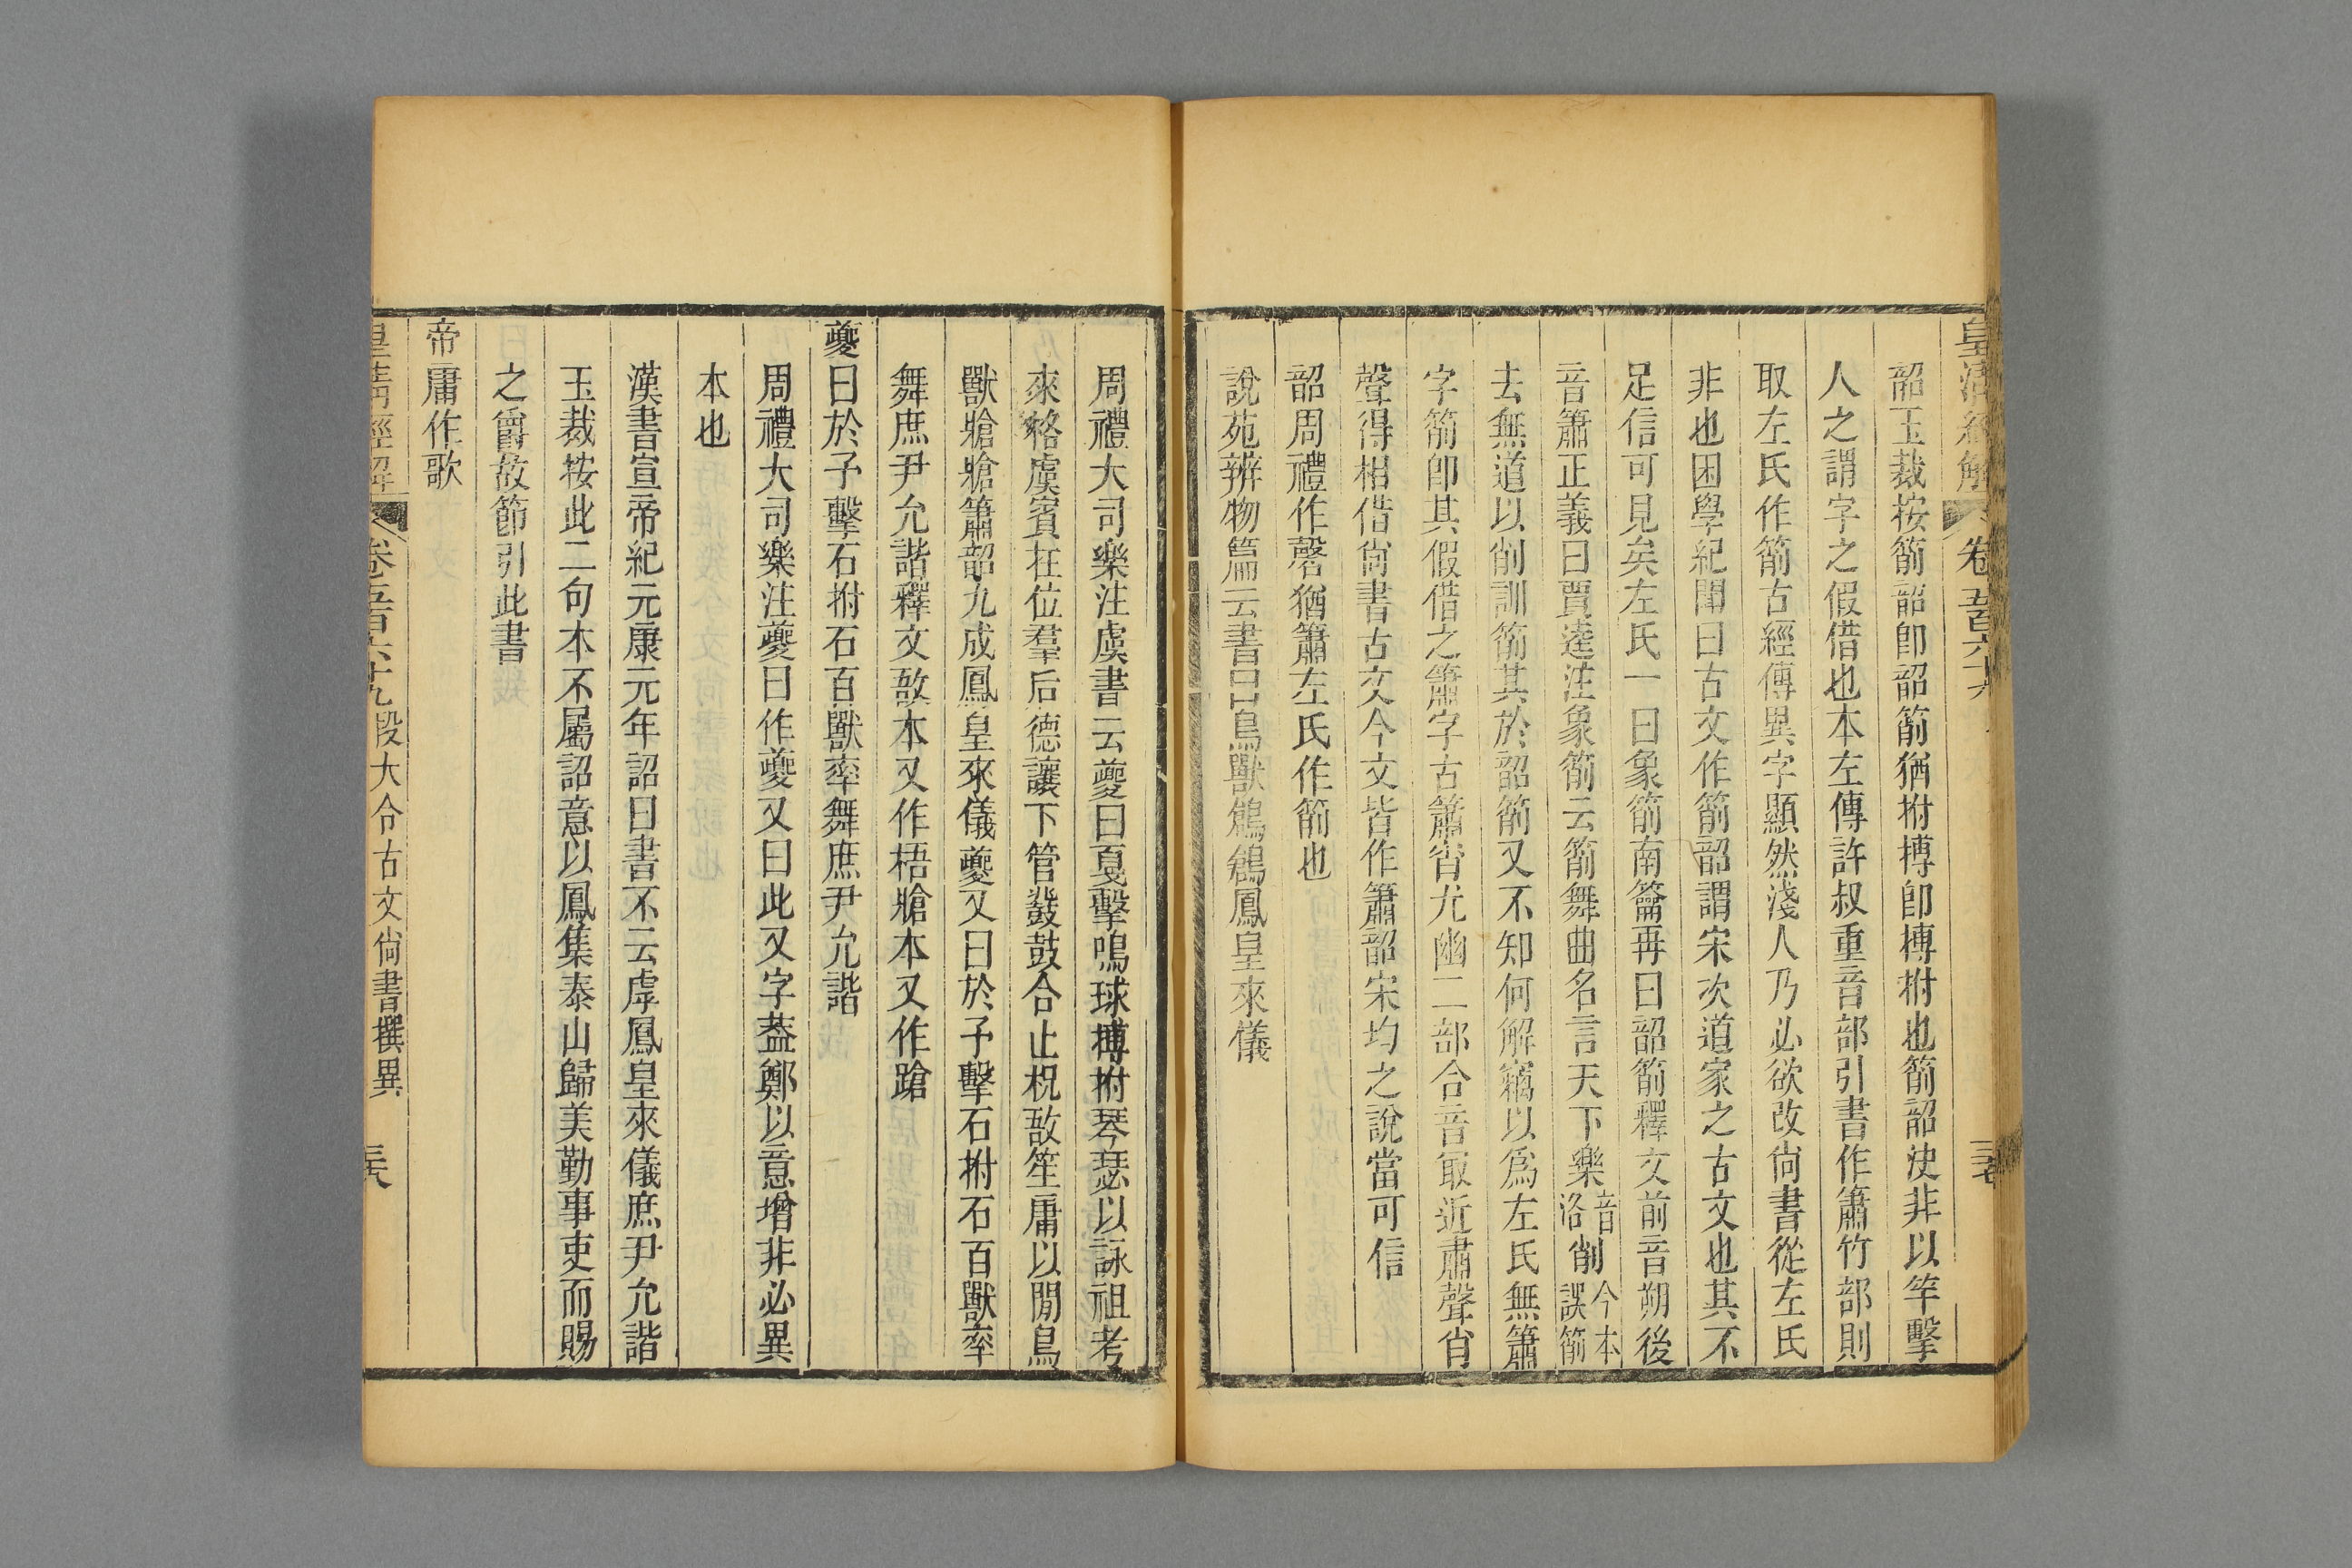 皇清經解 卷五百六十九
韶玉裁按箾韶卽韶箾猶拊搏卽搏拊也箾韶決非以竿擊
人之謂字之假借也本左傳許叔重音部引書作簫竹部則
取左氏作箾古經傳異字顯然淺人乃必欲改尙書從左氏
非也困學紀聞曰古文作箾韶謂宋次道家之古文也其不
足信可見矣左氏一曰象箾南籥再曰韶箾釋文前音朔後
音簫正義曰賈逵注象箾云箾舞曲名言天下樂音洛削今本誤箾
去無道以削訓箾其於韶箾又不知何解竊以爲左氏無簫
字箾卽其假借之簫字古簫宵尤幽二部合音㝡近肅聲肖
聲得相借尙書古文今文皆作簫韶宋均之說當可信
韶周禮作㲈猶簫左氏作箾也
說苑辨物篇云書曰鳥獸鶬鶬鳳皇來儀
周禮大司樂注虞書云夔曰戛擊鳴球搏拊琴瑟以詠祖考
來格虞賓在位羣后德讓下管鼗鼓合止柷敔笙庸以閒鳥
獸牄牄簫韶九成鳳皇來儀夔又曰於予擊石拊石百獸率
舞庶尹允諧釋文敔本又作梧牄本又作蹌
夔曰於予擊石拊石百獸率舞庶尹允諧
周禮大司樂注夔曰作夔又曰此又字葢鄭以意增非必異
本也
漢書宣帝紀元康元年詔曰書不云虖鳳皇來儀庶尹允諧
玉裁按此二句本不屬詔意以鳳集泰山歸美勤事吏而賜
之爵故節引此書
帝庸作歌
皇淸經解 卷五百六十九 段大令古文尙書撰異 三八